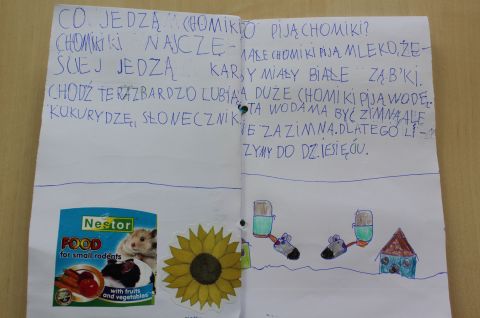 CO JEDZĄ CHOMIKI
CHOMIKI NAJCZĘ-
ŚCIEJ JEDZĄ KAR
CHODŹ TERZ BARDZO LUBIĄ
KUKURYDZĘ, SŁONECZNIK
Nestor
FOOD
for small rodents
with fruits
and vegetables
O PIJĄ CHOMIKI?
MAŁE CHOMIKI PIJĄ MLEKO, ŻE-
Y MIAŁY BIAŁE ZĄBKI.
A DUŻE CHOMIKI PIJĄ WODĘ,
TA WODA MA BYĆ ZIMNA ALE
NIE ZA ZIMNA. DLATEGO LI-
ZYMY DO DZIESIĘĆU.